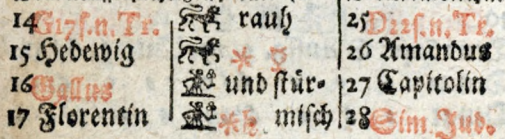 14 G17 s.n. Tr. rauh 25 D22 s.n. Tr.
15 Hedewig 26 Amandus
16 Gallus und stür- 27 Capitolin
17 Florentin misch 28 Sim. Jud.